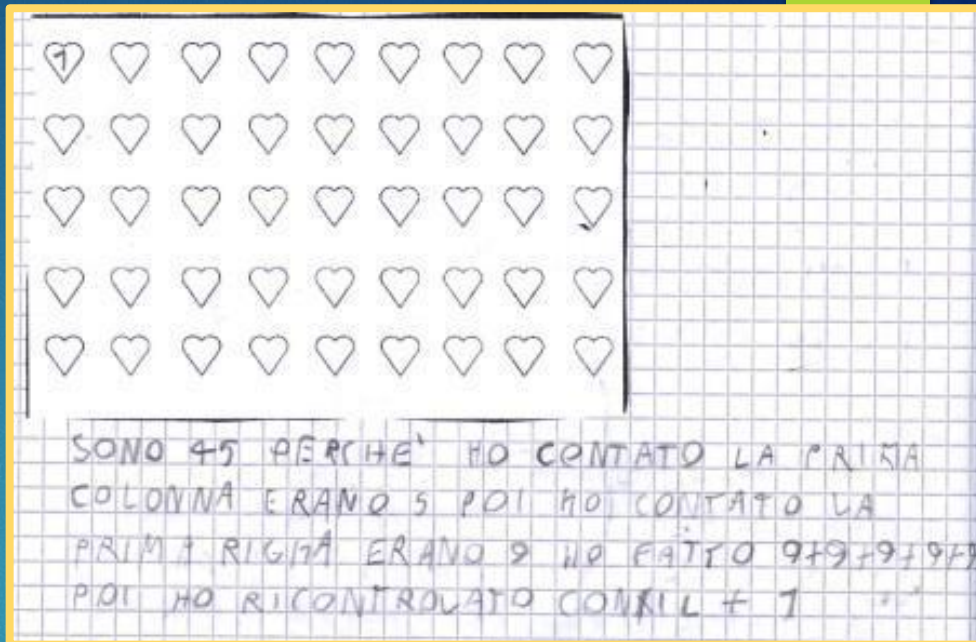 1
SONO 45 PERCHE' HO CONTATO LA PRIMA
COLONNA ERANO 5 POI HO CONTATO LA
PRIMA RIGHA ERANO 9 HO FATTO 9+9+9+9+9
POI HO RICONTROLATO CON IL + 1